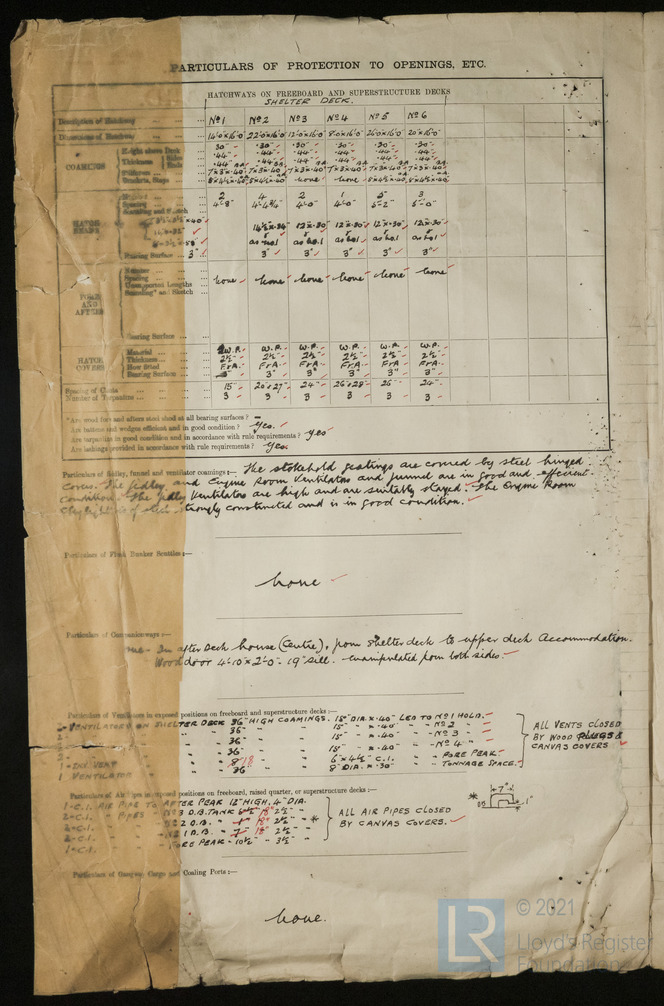 PARTICULARS OF PROTECTION TO OPENINGS, ETC.
HATCHWAYS ON FREEBOARD AND SUPERSTRUCTURE DECKS
SHELTER DECK.
Description of Hatchway Nº1 Nº2 Nº3 Nº4 Nº5 Nº6
Dimensions of Hatchway 14'0×16'0 22'0×16'0 12'0×16'0 8'0×16'0 26'0×16'0 20'×16'0
COAMINGS
Height above Deck 30" 30" 30" 30" 30" 30"
Thickness Sides .44" .44" .44" .44" .44" .44"
Ends .44" .44" .44" .44" .44" .44"
Stiffeners 7×3×.40 7×3×.40 7×3×.40 7×3×.40 7×3×.40 7×3×.40
Brackets, Stays none none
HATCH BEAMS
Number 2 4 2 1 5 3
Spacing 4'-8" 4'-4¾" 4'-0" 4'-0" 5'-0"
Scantling and Sketch
12×.30" 12×.30" 12×.30" 12×.30"
as No.1 as No.1 as No.1 as No.1 as No.1
Bearing Surface 3" 3" 3" 3" 3" 3"
FORE AND AFTERS
Number
Spacing
Unsupported Lengths
Scantling* and Sketch
none none none none none none
Bearing Surface
HATCH COVERS
Material W.P. W.P. W.P. W.P. W.P. W.P.
Thickness 2½" 2½" 2½" 2½" 2½" 2½"
How fitted F&A F&A F&A F&A F&A F&A
Bearing Surface 3" 3" 3" 3" 3" 3"
Spacing of Cleats 15" 20"&27" 24" 26"&28" 26" 24"
Number of Tarpaulins 3 3 3 3 3 3
*Are wood fore and afters steel shod at all bearing surfaces? –
Are battens and wedges efficient and in good condition? Yes.
Are tarpaulins in good condition and in accordance with rule requirements? yes
Are lashings provided in accordance with rule requirements? Yes.
Particulars of fiddley, funnel and ventilator coamings:— The stokehold gratings are covered by steel hinged
covers. The fidley and Engine Room Ventilators and funnel are in good and efficient
condition. The fidley Ventilators are high and are suitably stayed. The Engine Room
Skylight is of steel strongly constructed and is in good condition.
Particulars of Flush Bunker Scuttles:—
none
Particulars of Companionways:—
One - In after Deck house (Centre), from shelter deck to upper deck Accommodation.
Wood door 4'-10"×2'-0" - 19" sill. manipulated from both sides.
Particulars of Ventilators in exposed positions on freeboard and superstructure decks:—
VENTILATORS ON SHELTER DECK 36" HIGH COAMINGS. 15" DIA × .40" LED TO Nº1 HOLD.
" " 36" " 15" " × .40" " " Nº2 "
" " 36" " 15" " × .40" " " Nº3 "
" " 36" " 15" " × .40" " " Nº4 "
VENT " " 8" 18 " 6"×4½" C.I. " FORE PEAK.
1 VENTILATOR " " 36 " 8" DIA. × .30" " TONNAGE SPACE.
ALL VENTS CLOSED
BY WOOD PLUGS &
CANVAS COVERS
Particulars of Air Pipes in exposed positions on freeboard, raised quarter, or superstructure decks:—
1-C.I. AIR PIPE TO AFTER PEAK 12" HIGH, 4" DIA.
2-C.I. " PIPES " Nº3 D.B. TANK 18" 2½" "
2-C.I. " " Nº2 D.B. " 18" 2½" " *
2-C.I. " " Nº1 D.B. " 18" 2½" "
1-C.I. " " FORE PEAK - 10½" " 3½" "
ALL AIR PIPES CLOSED
BY CANVAS COVERS.
* 7"
Particulars of Gangway Cargo and Coaling Ports:—
none.
LR
© 2021
Lloyd's Register
Foundation